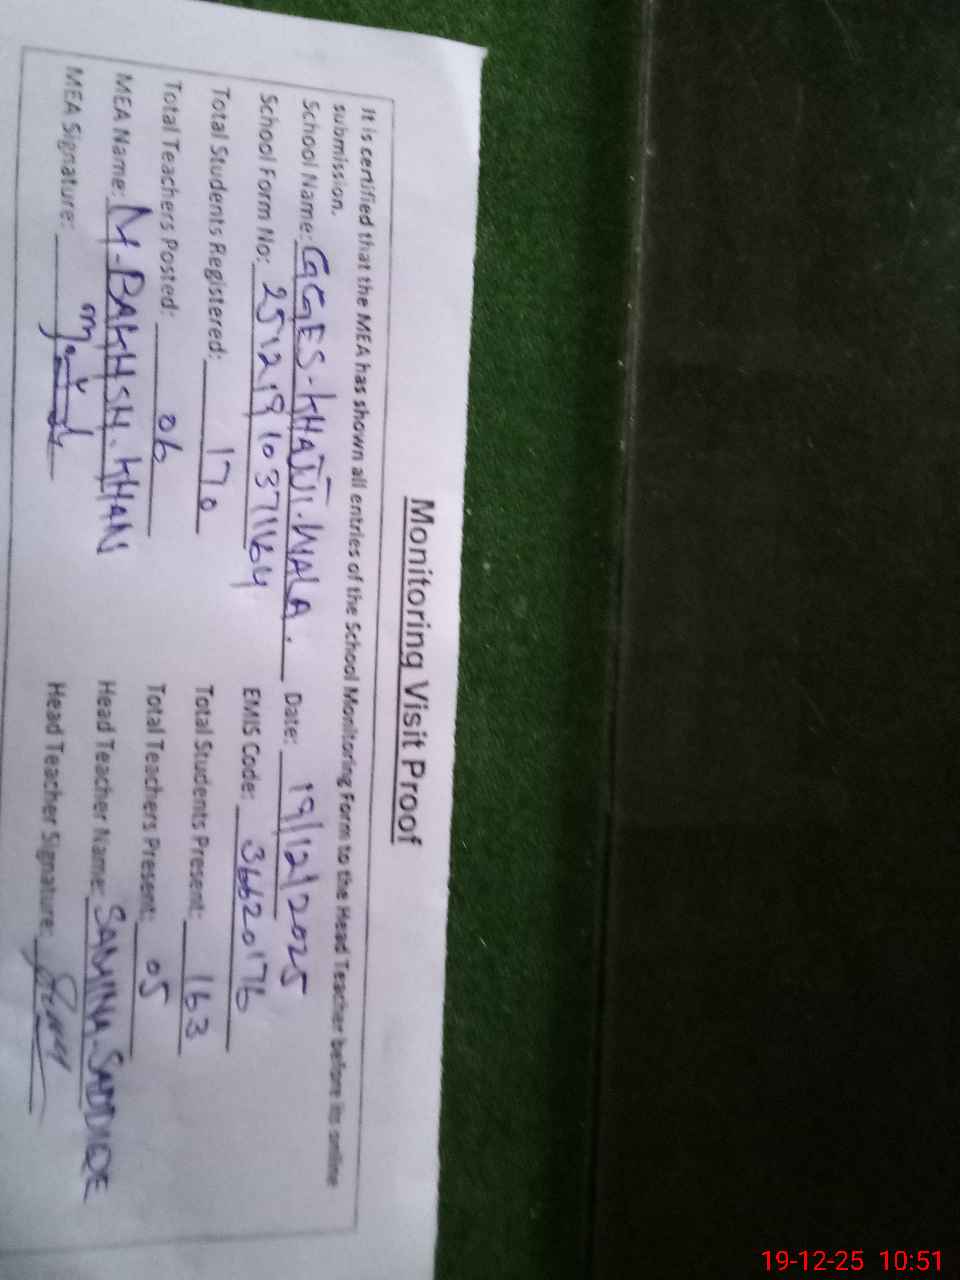 Monitoring Visit Proof
It is certified that the MEA has shown all entries of the School Monitoring Form to the Head Teacher before its online
submission.
School Name: GGES-KHAJJI.WALA. Date: 19/12/2025
School Form No: 25121910371164 EMIS Code: 36620176
Total Students Registered: 170 Total Students Present: 163
Total Teachers Posted: 06 Total Teachers Present: 05
MEA Name: M-BAKHSH.KHAN Head Teacher Name: SAMINA SADDIQE
MEA Signature: Head Teacher Signature:
19-12-25 10:51